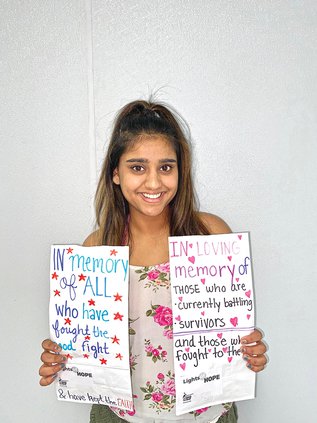 IN memory
of ALL
who have
fought the
good fight
Lights of HOPE
& have kept the FAITH
IN LOVING
memory of
THOSE who are
· currently battling
· survivors
and those who
fought to the
Lights of HOPE